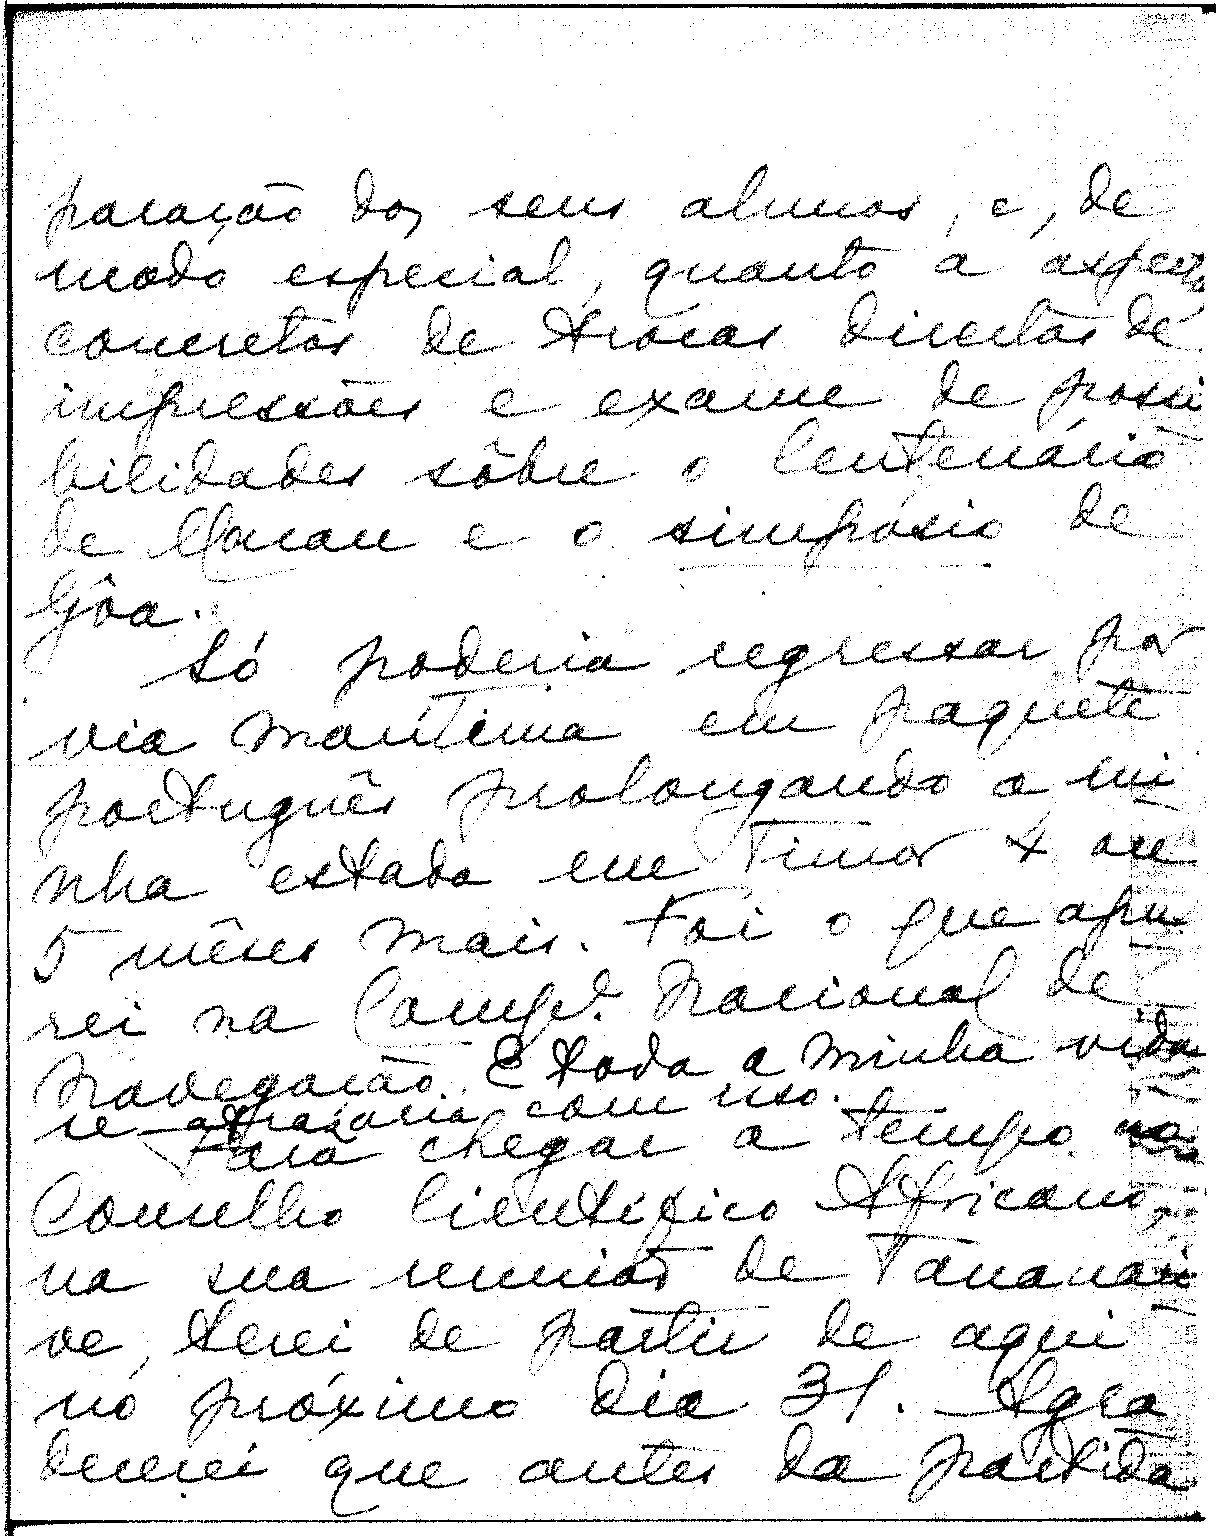 paração dos seus alunos, e, de
modo especial, quanto a aspectos
concretos de trocas directas de
impressões e exame de possi
bilidades sôbre o Centenário
de Macau e o simpósio de
Gôa.
Só poderia regressar por
via marítima em paquete
português prolongando a mi
nha estada em Timor 4 ou
5 mêses mais. Foi o que apu
rei na Compª. Nacional de
Navegação. E toda a minha vida
se atrazaria com isso.
Para chegar a tempo ao
Conselho Científico Africano,
na sua reunião de Tananari
ve, terei de partir de aqui
no próximo dia 31. Agra
decerei que antes da partida